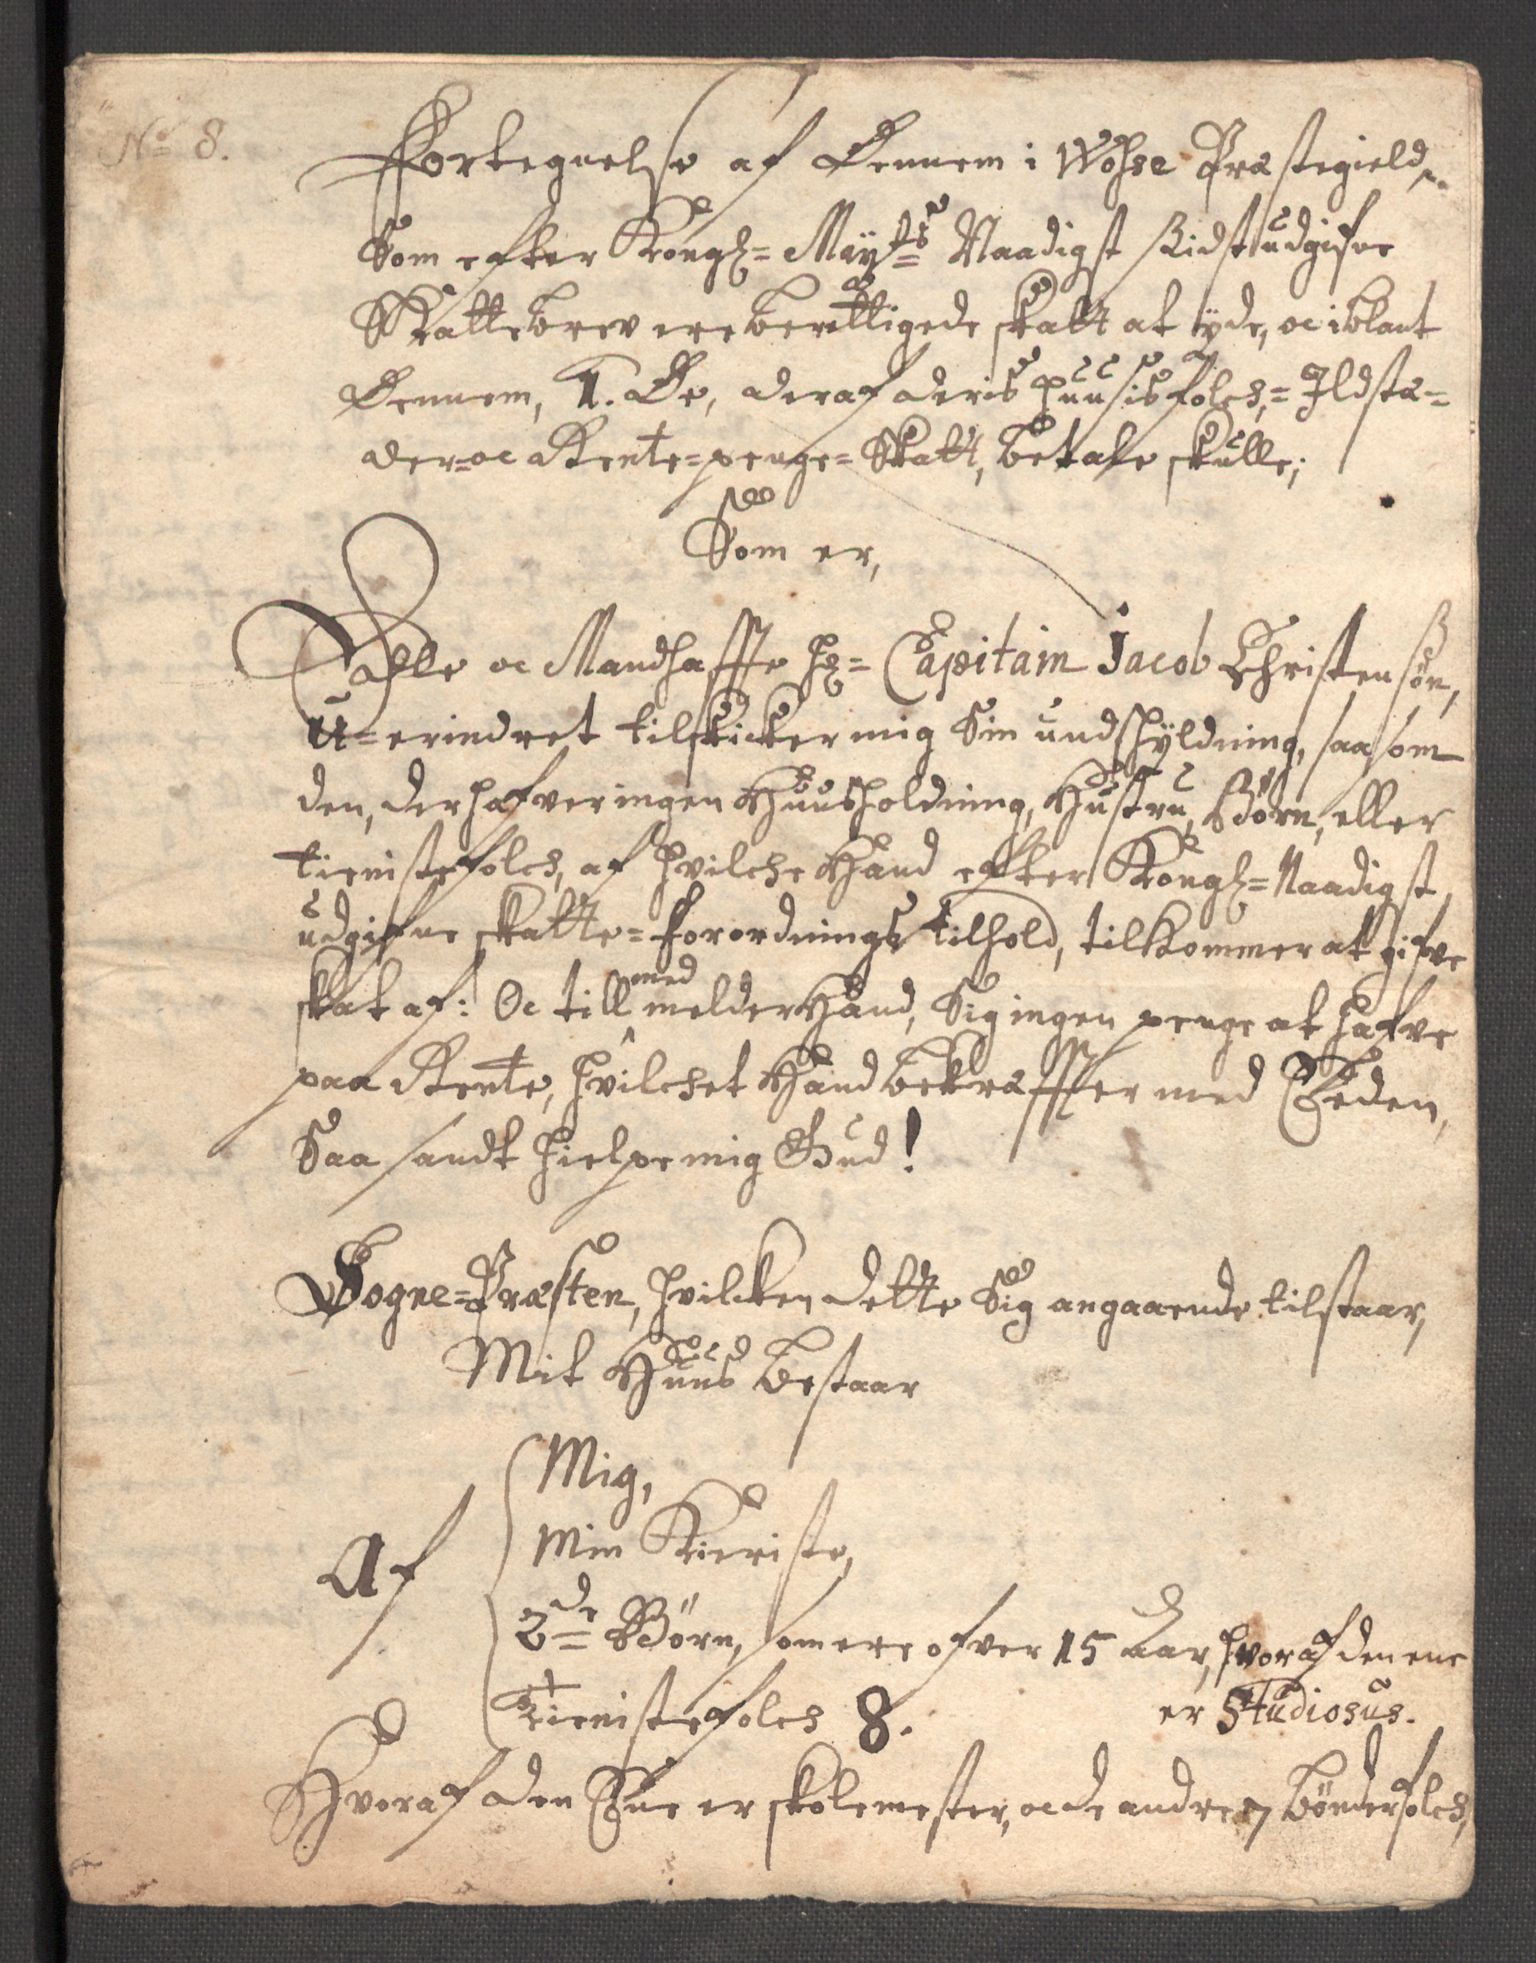 No 8.
Fortegnelse af Dennem i Wohse Præstegield,
Som efter Kongl= Mayts Naadigst sidst udgifne
Skattebrev ere berettigede skatt at yde, oc iblant
Dennem, 1. De, der af deris Huusisfolch,= Ildstæ=
der= oc Rente=penge= Skatt, betale skulle;
Som er,
Edle oc Mandhaffte Hr= Capitain Jacob Christensøn,
U=erindret tilskicker mig Sin undskyldning, saasom
den, der hafver ingen Huusholdning, Hustru, Børn, eller
tienistefolch, af hvilche Hand efter Kongl= Naadigst
udgifne skatte=forordnings tilhold, tilkommer at gifve
skat af: Oc till med melder Hand, Sig ingen penge at hafve
paa Rente, hvilchet Hand bekræffter med Eeden,
Saa sandt hielpe mig Gud!
Sogne=Præsten, hvilcken dette Sig angaaende tilstaar,
Mit Huus bestaar
Af
Mig,
Min Kieriste,
2de Børn, som ere ofver 15 Aar, hvoraf den ene
er Studiosus.
Tienistefolch 8.
Hvoraf den Ene er skolemester, oc de andre 7 bønderfolch,